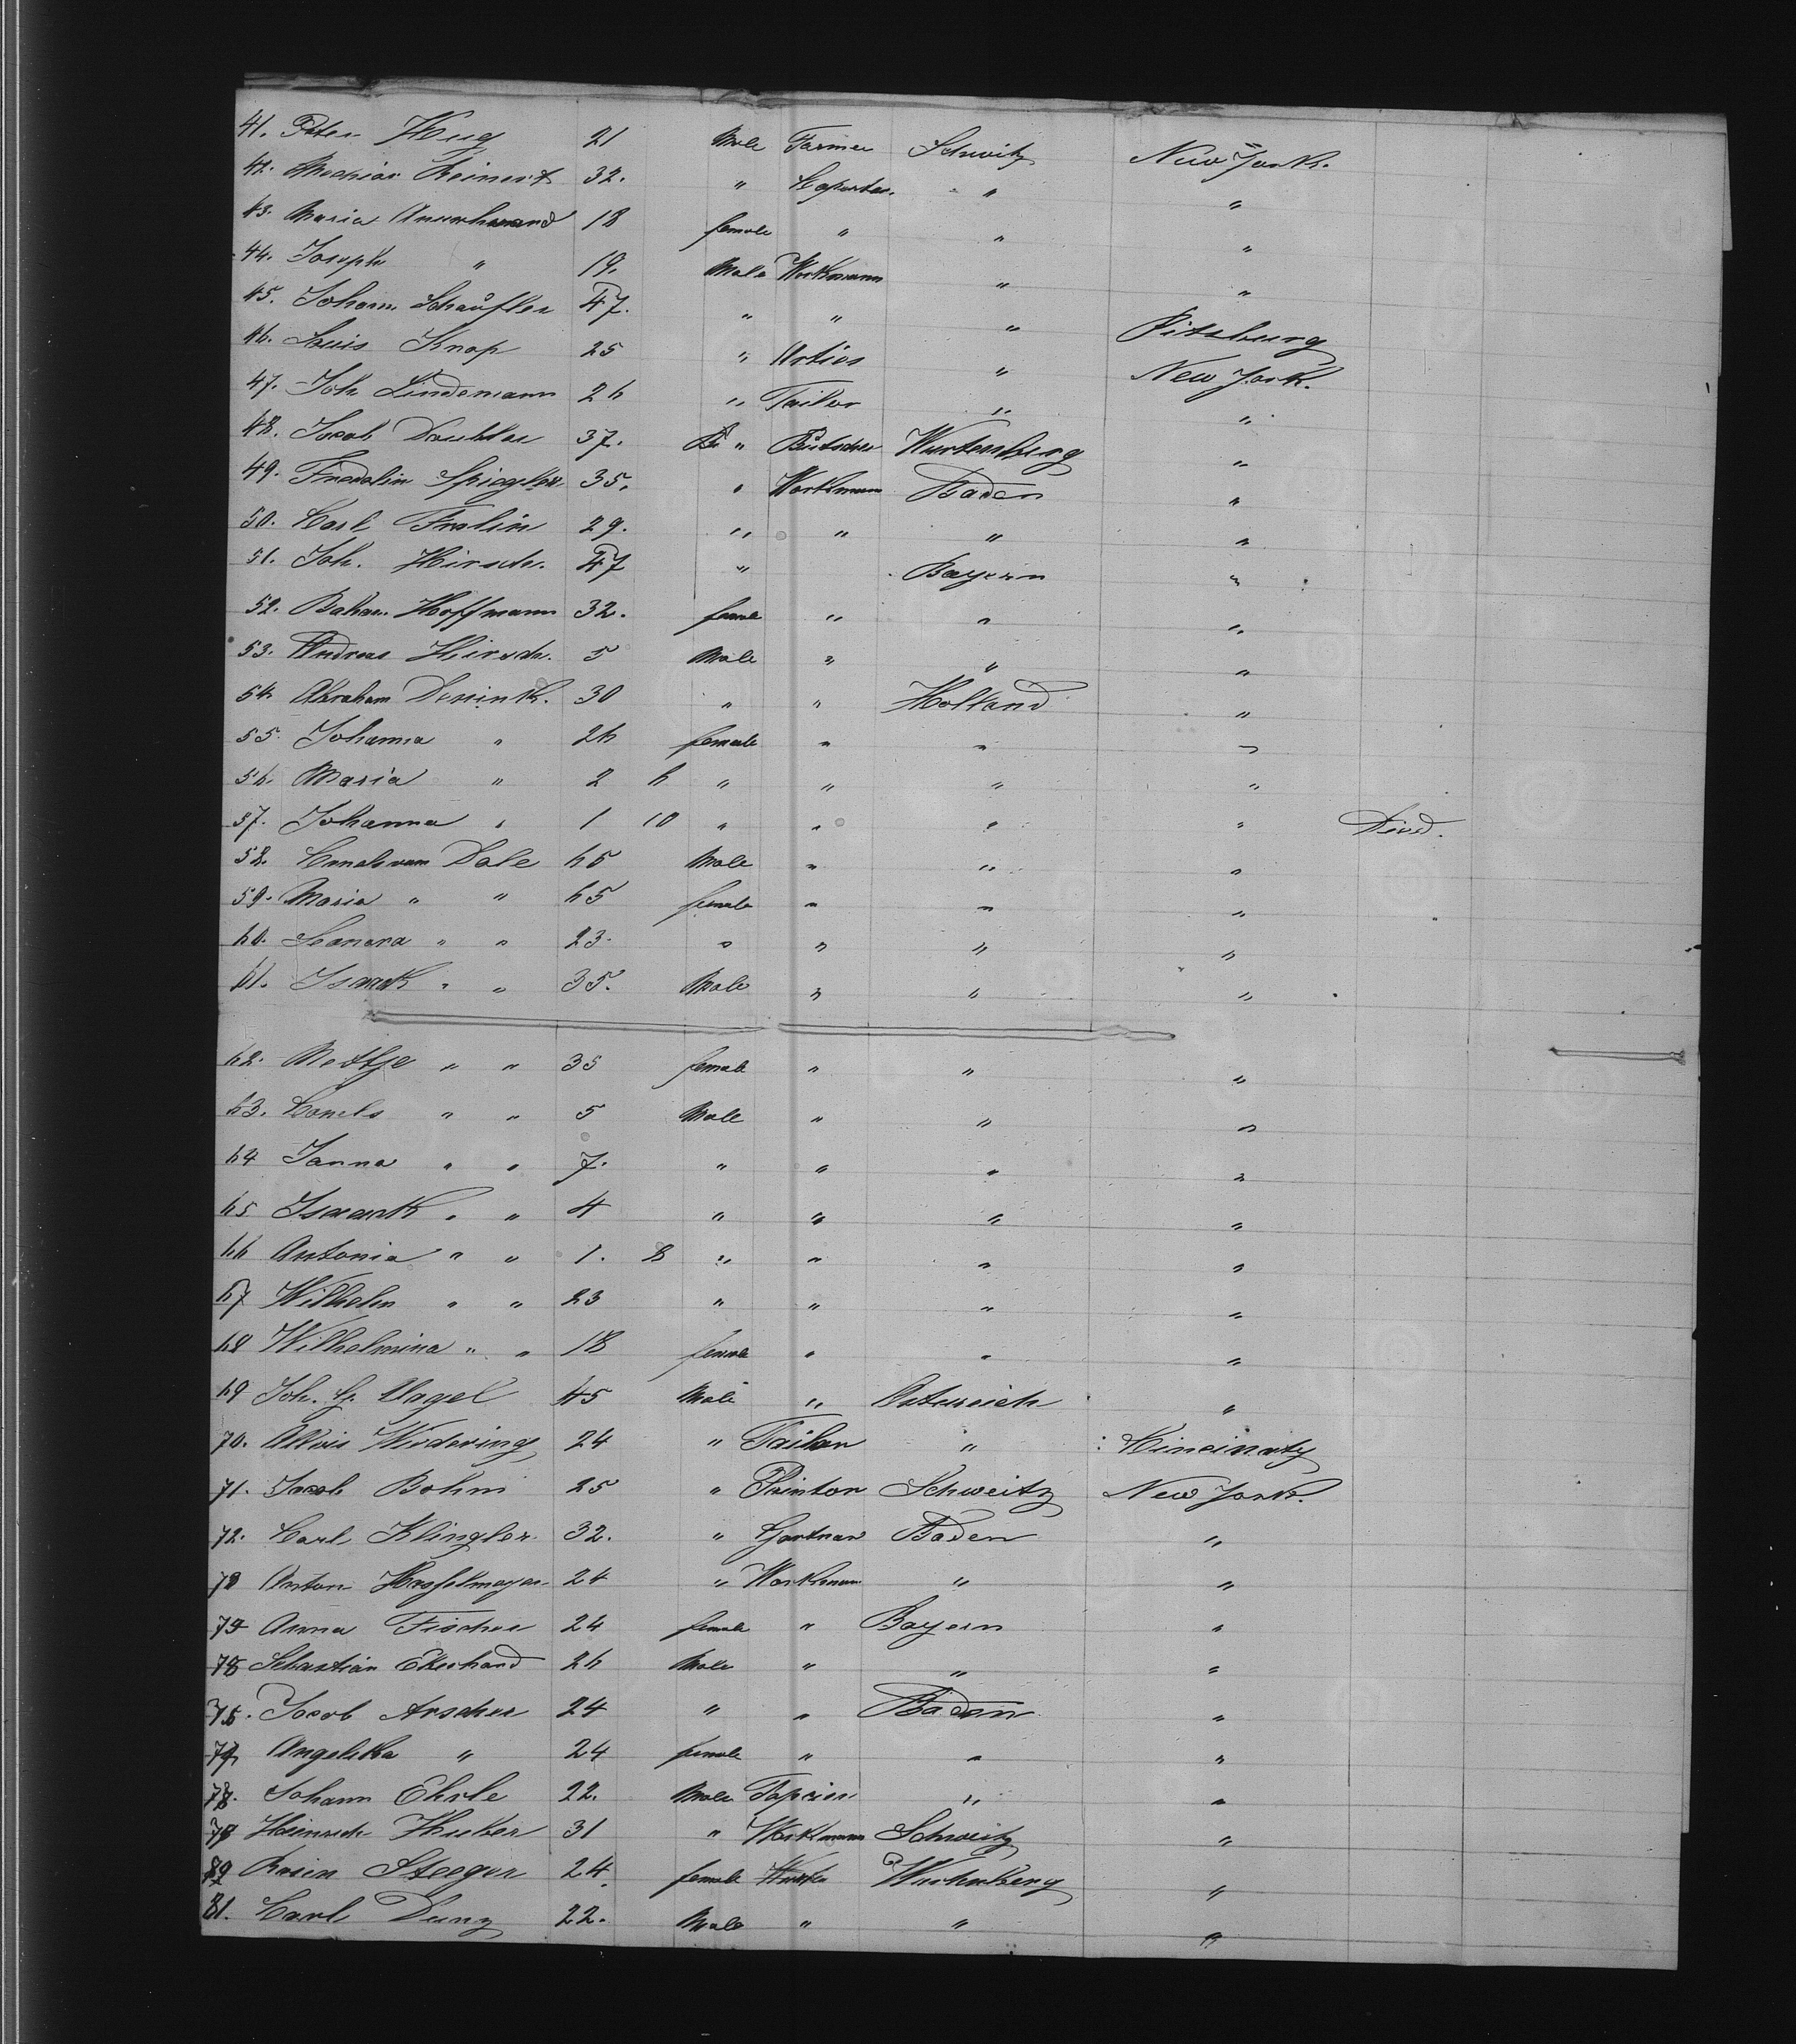 41. Peter Hug 21 Male Farmer Schweitz New York.
42. Reinert 32. " " "
43. Maria 18 female " " "
44. Joseph " 19. Male Workmann " "
45. Johann Schaufler 47. " " " Pitsburg
46. Louis Knop 25 " " New York.
47. Joh Lindemann 26 " Tailor " "
48. Jacob Daubler 37. " Wurtemberg "
49. Fridolin 35. " Workmann Baden "
50. Carl Fralin 29. " " " "
51. Joh. Hirsch. 47 " Bayern "
52. Hoffmann 32. female " " "
53. Andreas Hirsch. 5 Male " " "
54. Abraham 30 " " Holland "
55. Johanna " 26 female " " "
56. Maria " 2 6 " " " "
57. Johanna " 1 10 " " " " Died.
58. Dale 65 Male " " "
59. Maria " " 65 female " " "
60. " " 23. " " " "
61. Isaak " " 35. Male " " "
62. Metije " " 35 female " " "
63. Cornels " " 5 Male " " "
64 Janna " " 7. " " " "
65 Isaak " " 4 " " " "
66 Antonia " " 1. 8 " " " "
67 Wilhelm " " 23 " " " "
68 Wilhelmina " " 18 female " " "
69 Joh. G. Nagel 45 Male " Ostereich "
70. Alois 24 " Tailor " Cincinaty
71. Jacob Bohni 25 " Printor Schweitz New York.
72. Carl Klingler 32. " Gartnar Baden "
73 Anton 24 " Workmann " "
74 Anna Fischer 24 female " Bayern "
75 Sebastian Ekerhard 26 Male " " "
76. Jacob Arscher 24 " " Baden "
77 Angelika " 24 female " " "
78. Johann Ehrle 22. Male " "
79 Heinrich Huber 31 " Workmann Schweitz "
80 Rosin Steeger 24. female Wurtenberg "
81. Carl Dunz 22. Male " " "